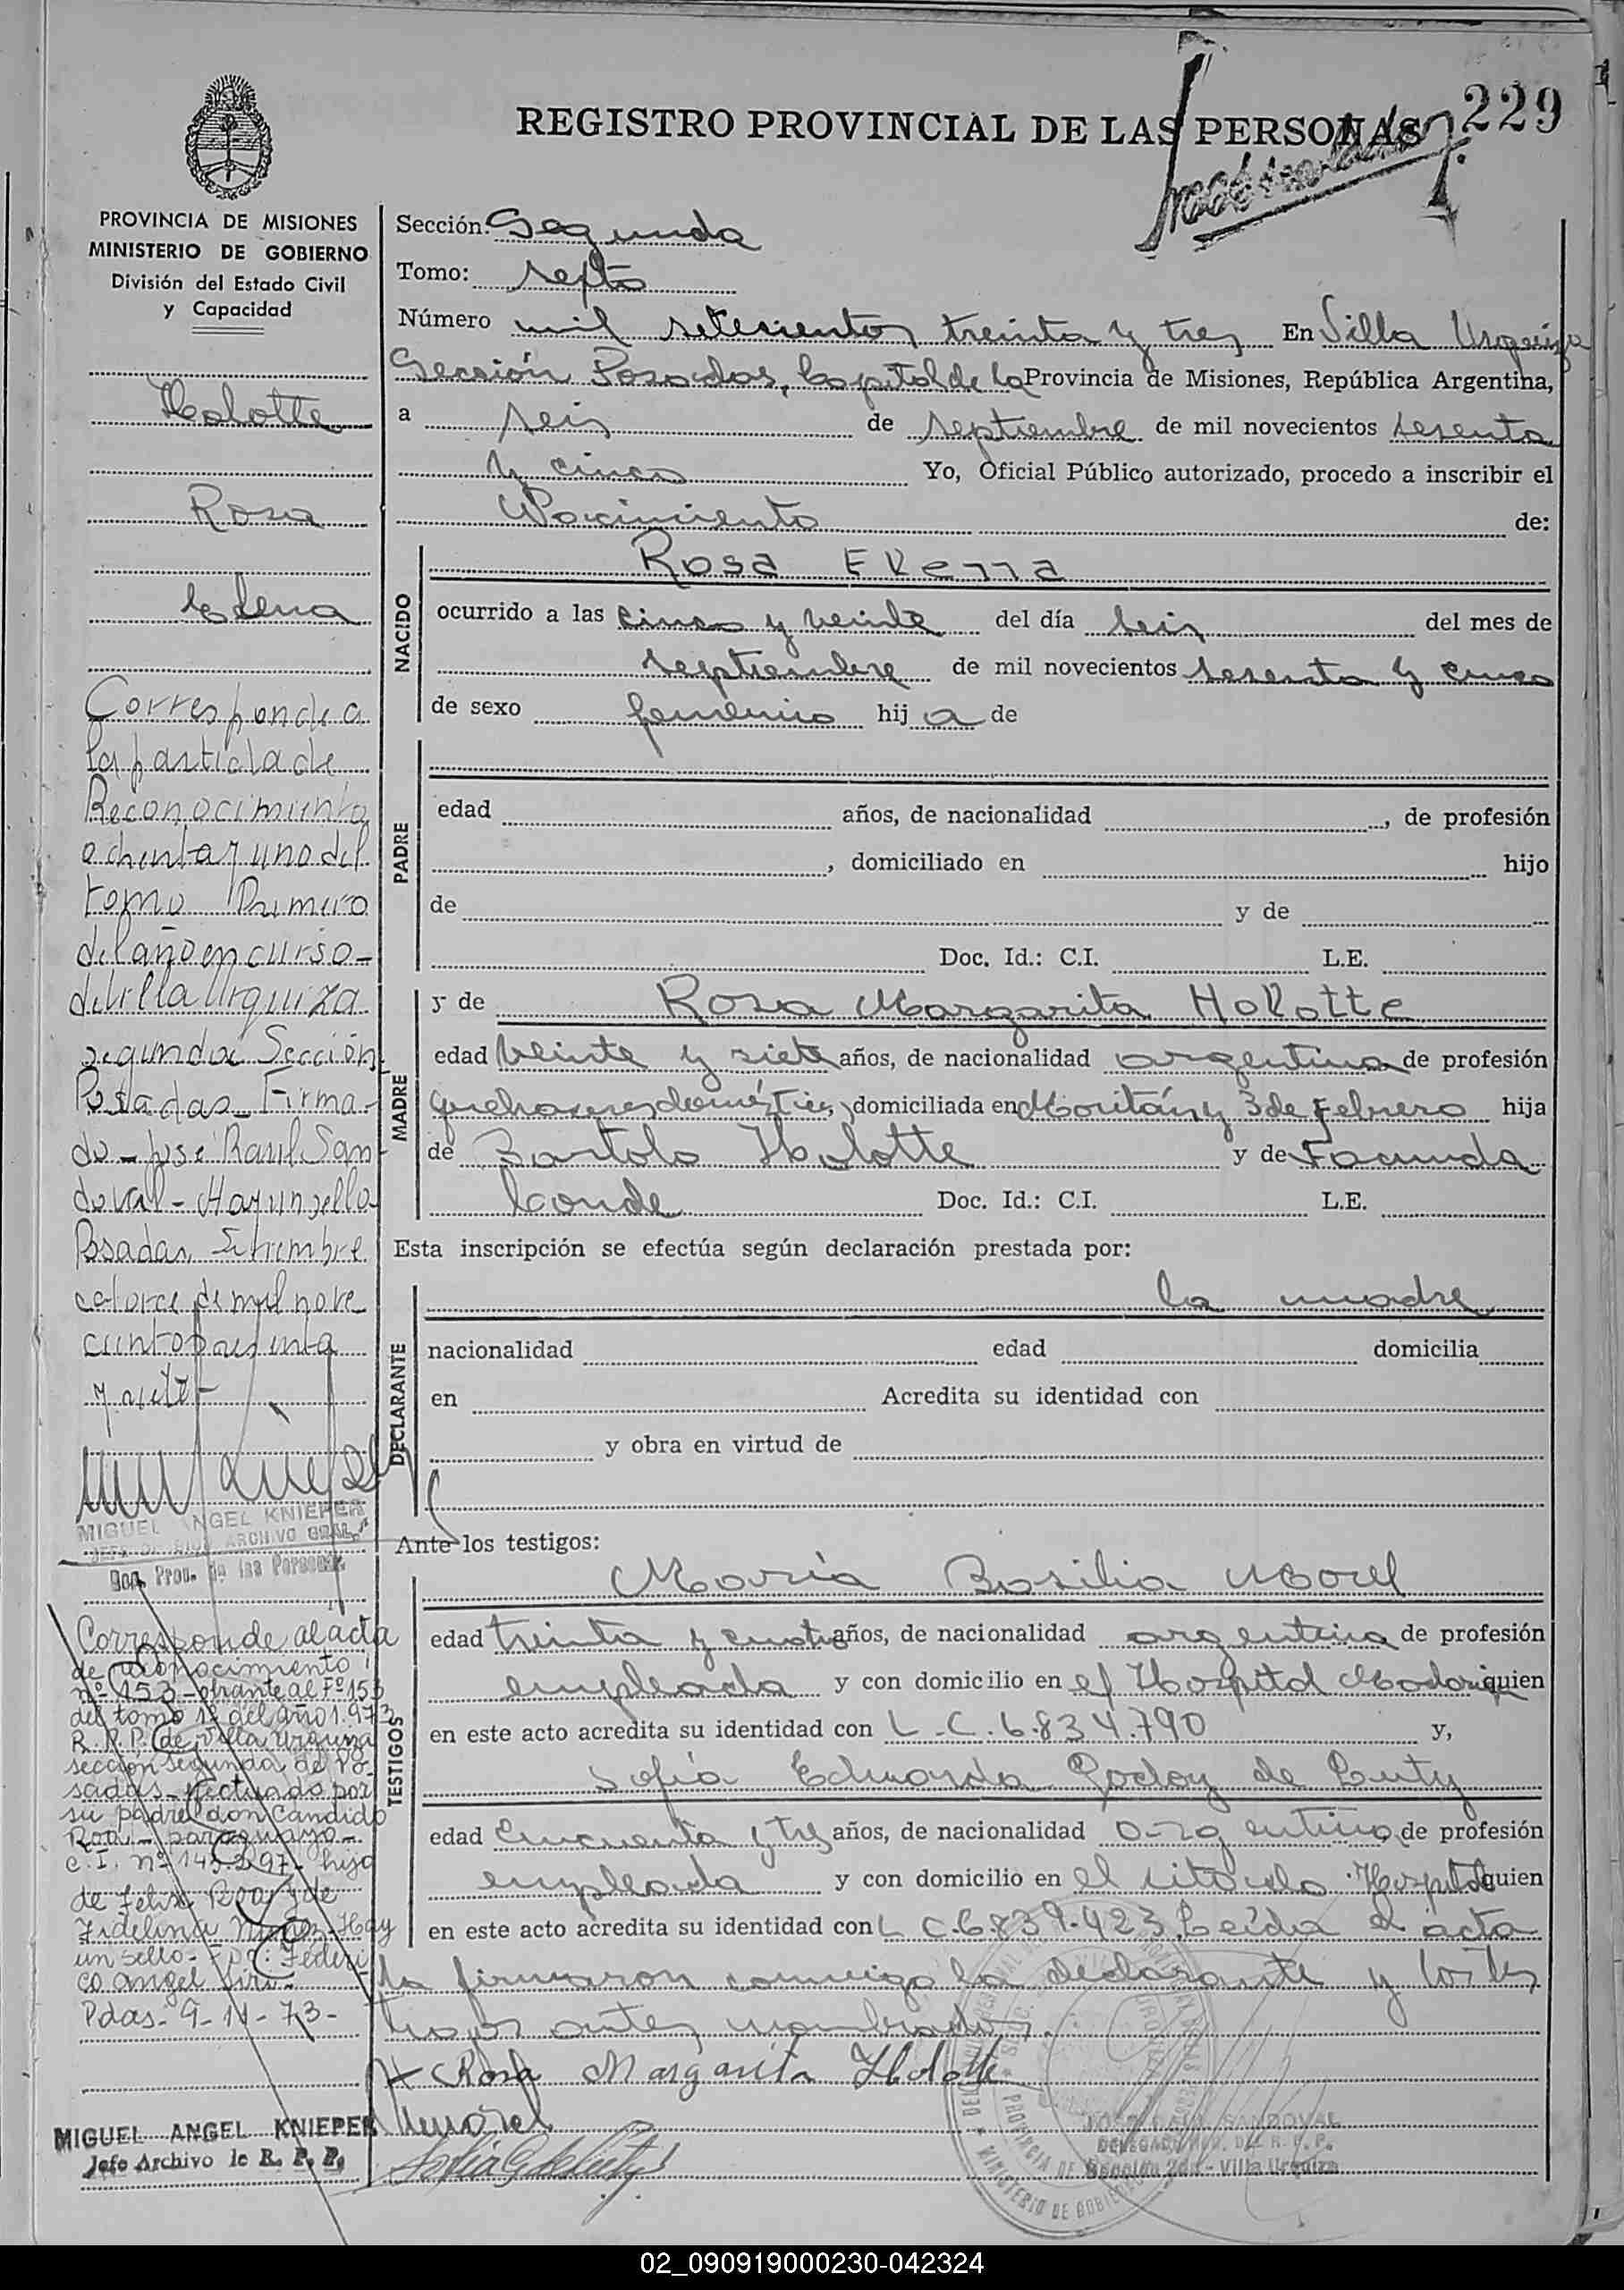 229
REGISTRO PROVINCIAL DE LAS PERSONAS
PROVINCIA DE MISIONES
MINISTERIO DE GOBIERNO
División del Estado Civil
y Capacidad
Holotte
Rosa
Elena
Corresponde a
la partida de
Reconocimiento
ochenta y uno del
tomo Primero
del año en curso-
de Villa Urquiza
segunda Sección
Posadas_ Firma-
do - José Raul San
doval - Hay un sello
Posadas, Setiembre
catorce de mil nove
cientos sesenta
y siete-
MIGUEL ANGEL KNIEPER
JEFE ARCHIVO GRAL.
Prov. de las Personas
Corresponde al acta
de reconocimiento
nº 153 - obrante al Fº 153
del tomo 1º del año 1.973
R.P.P. de Villa Urquiza
sección segunda de Po-
sadas - efectuado por
su padre don Candido
Roa - paraguayo -
C.I. nº hijo
de Felix Roa y de
Fidelina Hay
un sello - Fdo: Federi
co angel
Pdas- 9-11-73-
MIGUEL ANGEL KNIEPER
Jefe Archivo de R. P. P.
Sección: Segunda
Tomo: septo
Número mil setecientos treinta y tres En Villa Urquiza
Sección Posadas, Capital de la Provincia de Misiones, República Argentina,
a seis de septiembre de mil novecientos sesenta
y cinco Yo, Oficial Público autorizado, procedo a inscribir el
Nacimiento de:
NACIDO
Rosa Elena
ocurrido a las cinco y veinte del día seis del mes de
septiembre de mil novecientos sesenta y cinco
de sexo femenino hij a de
PADRE
edad años, de nacionalidad , de profesión
, domiciliado en hijo
de y de
Doc. Id.: C.I. L.E.
MADRE
y de Rosa Margarita Holotte
edad veinte y siete años, de nacionalidad argentina de profesión
quehaceres domésticos, domiciliada en y 3 de Febrero hija
de Bartolo Holotte y de Facunda
Conde Doc. Id.: C.I. L.E.
Esta inscripción se efectúa según declaración prestada por:
DECLARANTE
la madre
nacionalidad edad domicilia
en Acredita su identidad con
y obra en virtud de
Ante los testigos:
TESTIGOS
María Basilia Morel
edad treinta y cuatro años, de nacionalidad argentina de profesión
empleada y con domicilio en el Hospital Madariaga quien
en este acto acredita su identidad con L.C. 6.834.790 y,
Sofía Eduarda Godoy de Cuty
edad cincuenta y tres años, de nacionalidad argentina, de profesión
empleada y con domicilio en el citado Hospital quien
en este acto acredita su identidad con L C. 6.839.423. Leída el acta
la firmaron conmigo la declarante y los tes
tigos antes nombrados.
Rosa Margarita Holotte
JOSE RAUL SANDOVAL
DELEGADO R. P. P.
Sección 2da - Villa Urquiza
02_090919000230-042324